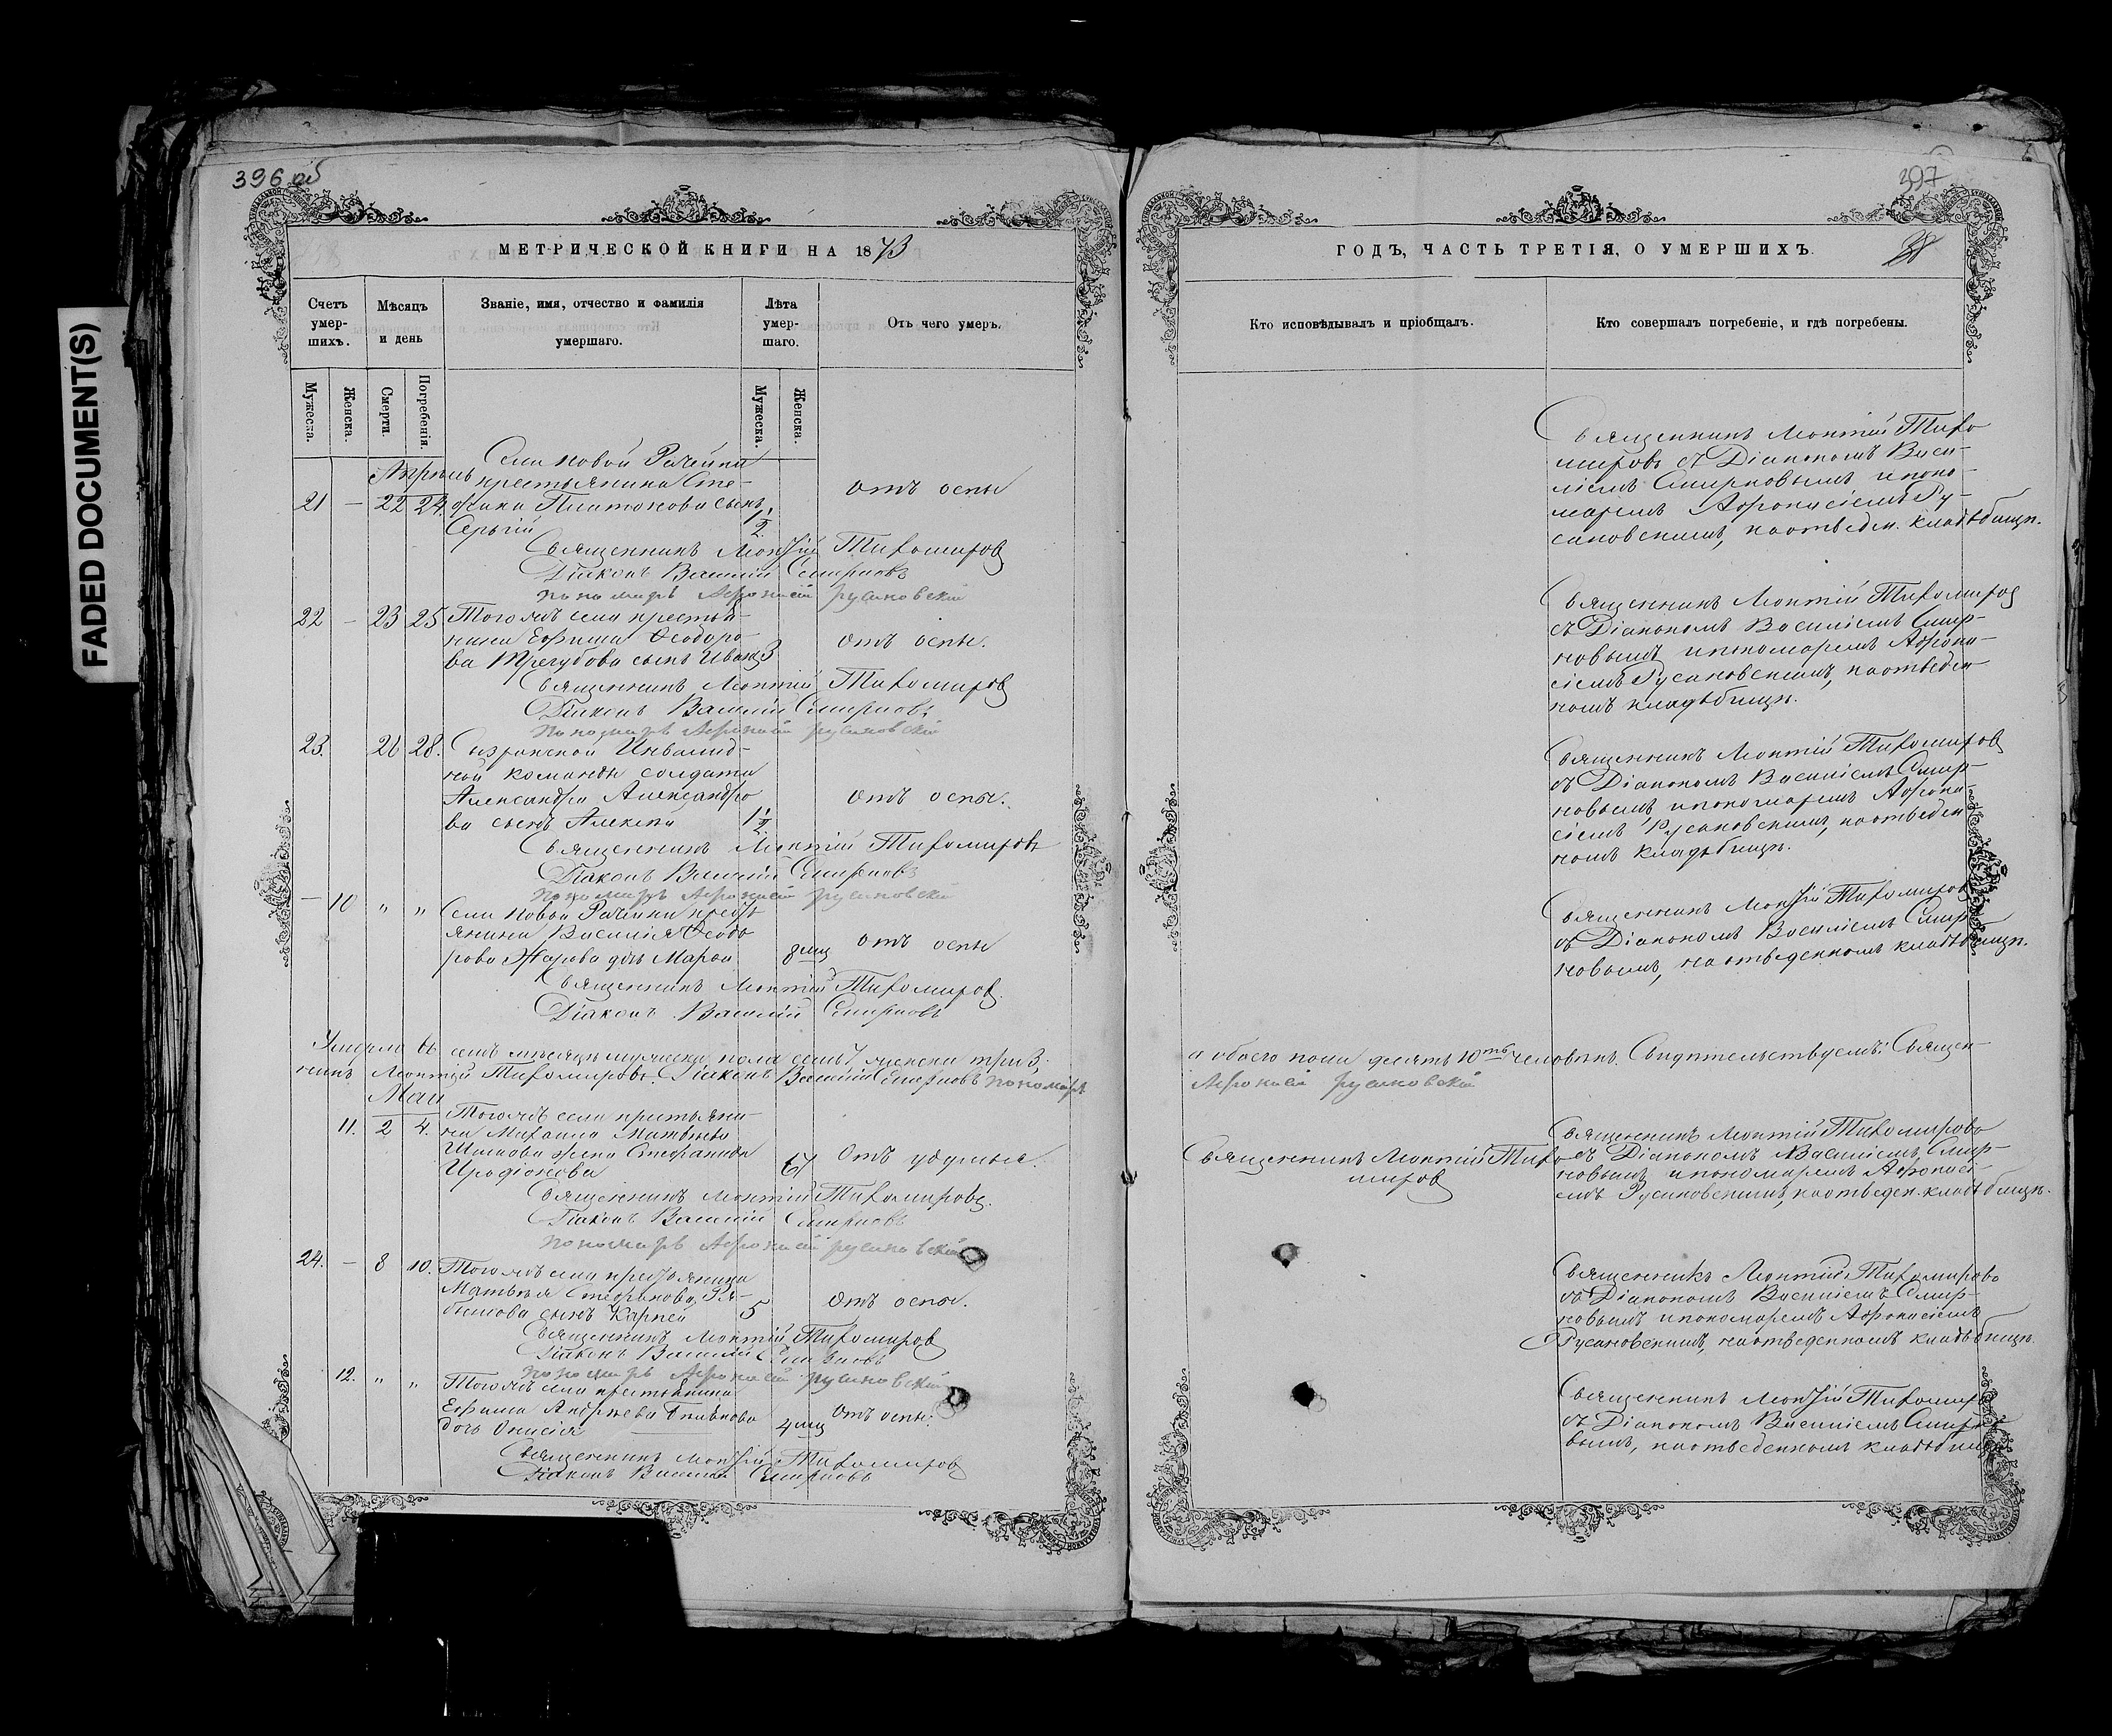 FADED DOCUMENT(S)
396 об
МЕТРИЧЕСКОЙ КНИГИ НА 1873
Счетъ умер-шихъ.
Мѣсяцъ и день
Званіе, имя, отчество и фамилія умершаго.
Лѣта умер-шаго.
Отъ чего умеръ.
Мужеска.
Женска.
Смерти.
Погребенія.
Мужеска.
Женска.
Апрѣль
Села Новой Рачейки
крестьянина Сте-
21 — 22 24. фана Платонова сынъ, 1/2 отъ оспы
Сергій
Священникъ Леонтій Тихомировъ
Діаконъ Василій Смирновъ
пономарь Афонасій Русановскій
22 — 23 25 Того же села крестья-
нина Ефима Ѳеодоро- отъ оспы.
ва Трегубова сынъ Иванъ 3
Священникъ Леонтій Тихомировъ
Діаконъ Василій Смирновъ
пономарь Афонасій Русановскій
23. 26 28. Сызранской Инвалид-
ной команды солдата
Александра Александро отъ оспы.
ва сынъ Алексѣй 1/2
Священникъ Леонтій Тихомировъ
Діаконъ Василій Смирновъ
пономарь Афонасій Русановскій
— 10 " " Села Новой Рачейки крест
янина Василія Ѳеодо отъ оспы
рова дчь Марѳа 8 мц
Священникъ Леонтій Тихомировъ.
Діаконъ Василій Смирновъ
Умерло въ семъ мѣсяцѣ мужеска пола семь 7 женска три 3,
никъ Леонтій Тихомировъ. Діаконъ Василій Смирновъ пономарь
Май
Того же села крестьяни-
11. 2 4. на Михаила Матвѣева
жена Стефанида отъ удушья.
Иродіонова
Священникъ Леонтій Тихомировъ.
Діаконъ Василій Смирновъ
пономарь Афонасій Русановскій
24. — 8 10. Того же села крестьянина
Матвѣя Стефанова Ря- отъ оспы.
сынъ Карпъ 5
Священникъ Леонтій Тихомировъ
Діаконъ Василій Смирновъ
пономарь Афонасій Русановскій
12. " " Того же села крестьянина
Ефима Андрѣева отъ оспы.
дочь Анисія 4 мц
Священникъ Леонтій Тихомировъ
Діаконъ Василій Смирновъ
397
ГОДЪ, ЧАСТЬ ТРЕТІЯ, О УМЕРШИХЪ.
38
Кто исповѣдывалъ и пріобщалъ.
Кто совершалъ погребеніе, и гдѣ погребены.
Священникъ Леонтій Тихо
мировъ съ Діакономъ Васи-
ліемъ Смирновымъ и поно-
маремъ Афонасіемъ Ру-
сановскимъ, на отведен. кладбищѣ.
Священникъ Леонтій Тихомировъ
съ Діакономъ Василіемъ Смир-
новымъ и пономаремъ Афона-
сіемъ Русановскимъ, на отведен
номъ кладбищѣ.
Священникъ Леонтій Тихомировъ
съ Діакономъ Василіемъ Смир-
новымъ и пономаремъ Афона-
сіемъ Русановскимъ, на отведен
номъ кладбищѣ.
Священникъ Леонтій Тихомировъ
съ Діакономъ Василіемъ Смир-
новымъ, на отведенномъ кладбищѣ.
а обоего пола десять 10ть человѣкъ. Свидѣтельствуемъ: Священ-
Афонасій Русановскій
Священникъ Леонтій Тихо
мировъ
Священникъ Леонтій Тихомировъ
съ Діакономъ Василіемъ Смир-
новымъ и пономаремъ Афонасі-
емъ Русановскимъ, на отведен. кладбищѣ.
Священникъ Леонтій Тихомировъ
съ Діакономъ Василіемъ Смир-
новымъ и пономаремъ Афонасіемъ
Русановскимъ, на отведенномъ кладбищѣ.
Священникъ Леонтій Тихомировъ
съ Діакономъ Василіемъ Смирно
вымъ, на отведенномъ кладбищѣ